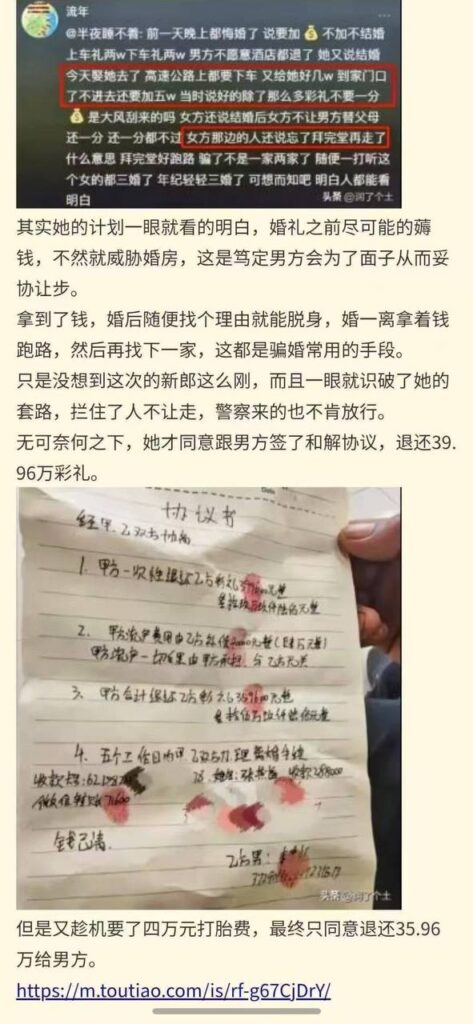 流年
@半夜睡不着: 前一天晚上都悔婚了 说要加💰 不加不结婚
上车礼两w下车礼两w 男方不愿意酒店都退了 她又说结婚
今天娶她去了 高速公路上都要下车 又给她好几w 到家门口
了不进去还要加五w 当时说好的除了那么多彩礼不要一分
💰 是大风刮来的吗 女方还说结婚后女方不让男方替父母
还一分 还一分都不过 女方那边的人还说忘了拜完堂再走了
什么意思 拜完堂好跑路 骗了不是一家两家了 随便一打听这
个女的都三婚了 年纪轻轻三婚了 可想而知吧 明白人都能看
明白
头条 @润了个土
其实她的计划一眼就看的明白，婚礼之前尽可能的薅
钱，不然就威胁婚房，这是笃定男方会为了面子从而妥
协让步。
拿到了钱，婚后随便找个理由就能脱身，婚一离拿着钱
跑路，然后再找下一家，这都是骗婚常用的手段。
只是没想到这次的新郎这么刚，而且一眼就识破了她的
套路，拦住了人不让走，警察来的也不肯放行。
无可奈何之下，她才同意跟男方签了和解协议，退还39.
96万彩礼。
协议书
经甲、乙双方协商
1. 甲方一次性退还乙方彩礼
2. 甲方流产费用由乙方
甲方流产一切
3. 甲方合计退还乙方彩礼359600元整
4. 五个工作日内
收款 288000
71600
钱已清.
乙方男:
头条 @润了个土
但是又趁机要了四万元打胎费，最终只同意退还35.96
万给男方。
https://m.toutiao.com/is/rf-g67CjDrY/